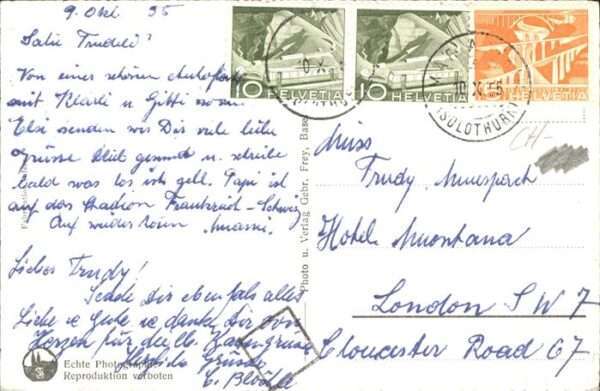 9. Okt. 55
Salü Trudeli!
Von einer schönen Autofahrt
mit Klärli u. Gitti u.
Elsi senden wir Dir viele liebe
Grüsse. Bleib gesund u. schreibe
bald was los ist, gell. Papi ist
auf das Stadion Frankreich-Schweiz
Auf wiedersehen Mammi.
Liebes Trudy!
Sende Dir ebenfalls alles
Liebe u. Gute u. danke Dir von
Herzen für die lb. Kartengrüsse
Herzliche Grüsse
E.
Echte Photographie
Reproduktion verboten
Photo u. Verlag Gebr. Frey, Basel
10 HELVETIA
10 HELVETIA
HELVETIA
10.X.55
(SOLOTHURN)
CH-
Miss
Trudy
Hotel Montana
London S W 7
Gloucester Road 67